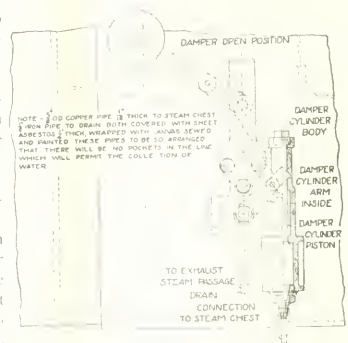 DAMPER OPEN POSITION
NOTE - OD COPPER PIPE THICK TO STEAM CHEST
IRON PIPE TO DRAIN BOTH COVERED WITH SHEET
ASBESTOS THICK, WRAPPED WITH SEWED
AND PAINTED THESE PIPES TO BE SO ARRANGED
THAT THERE WILL BE NO POCKETS IN THE LINE
WHICH WILL PERMIT THE OF
WATER
DAMPER
CYLINDER
BODY
DAMPER
CYLINDER
ARM
INSIDE
DAMPER
CYLINDER
PISTON
TO EXHAUST
STEAM PASSAGE
DRAIN
CONNECTION
TO STEAM CHEST